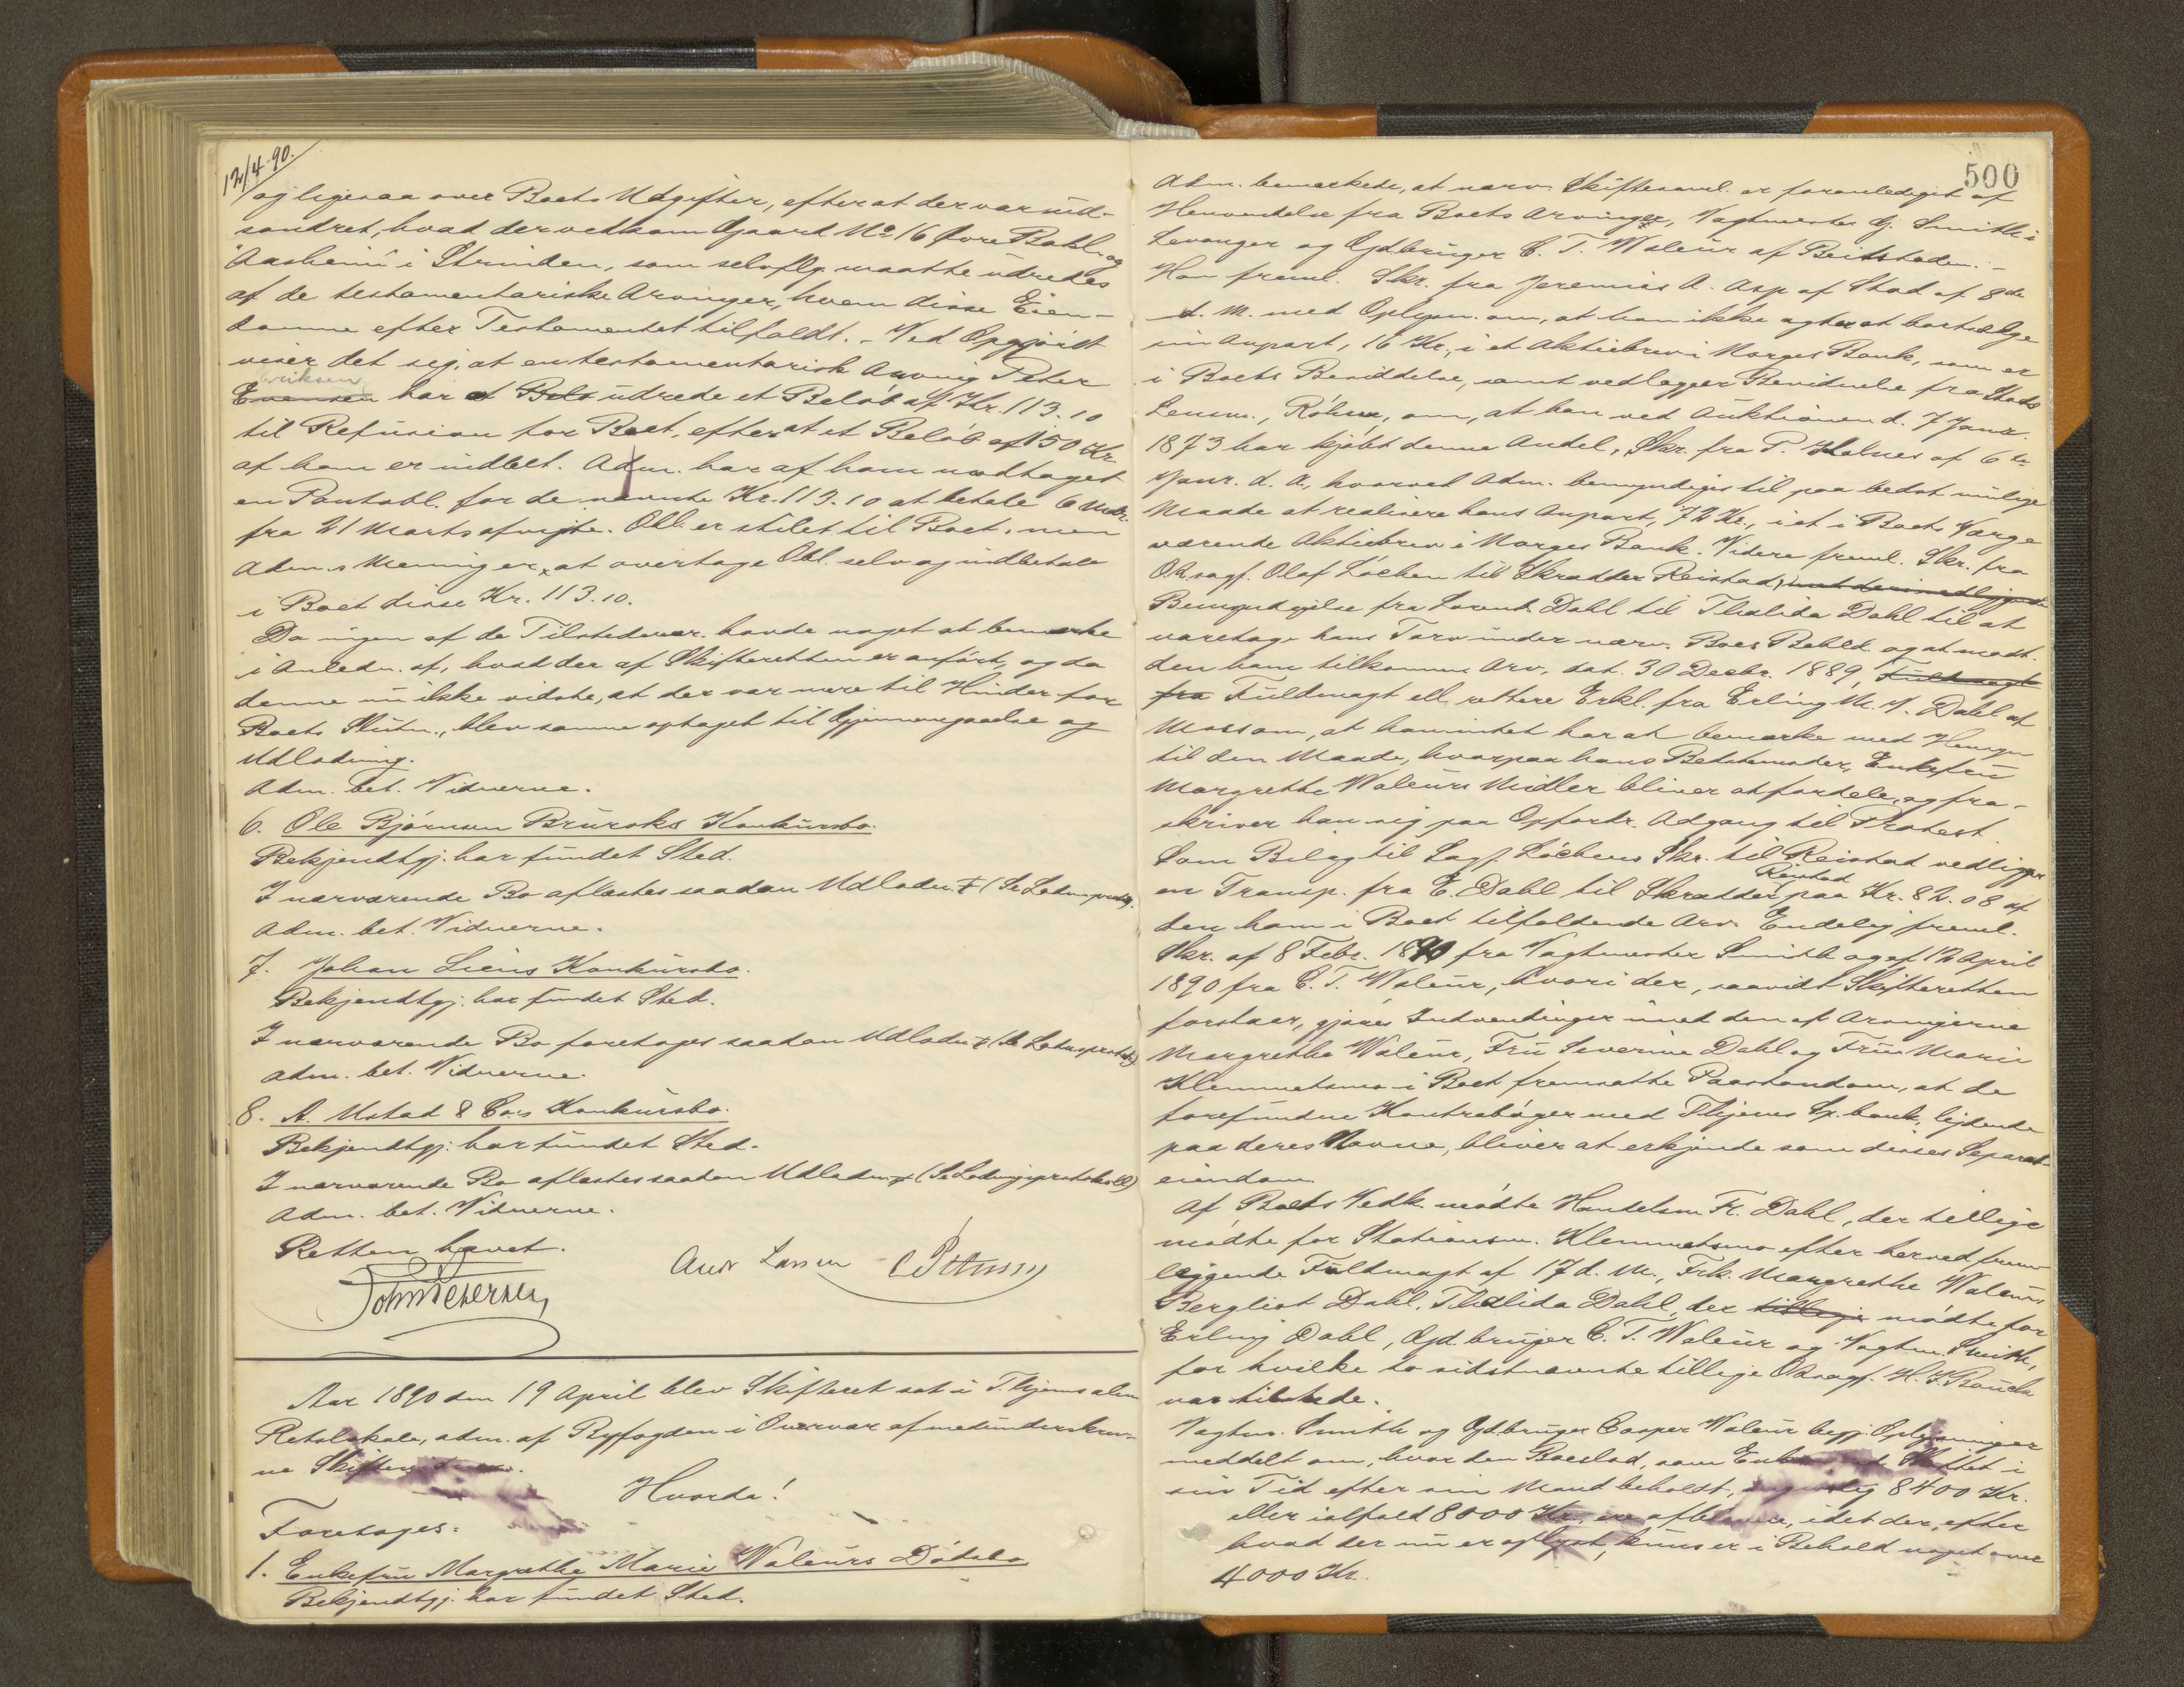 12/4-90.
og ligesaa over Boets Udgifter, efter at der var ud-
sondret, hvad der vedkom Gaard No 16 Øvre Bakl. og
"Aasheim" i Strinden, som selvflg. maatte udredes
af de testamentariske Arvinger, hvem disse Eien-
domme efter Testamentet tilfaldt. - Ved Opgjöret
viser det sig, at en testamentarisk Arving Peter
Eriksen
Evensen har at Belö udrede et Belöb af Kr. 113.10
til Refusion for Boet, efter at et Belöb af 150 Kr
af ham er indbet. Adm. har af ham modtaget
en Pantobl. for de nævnte Kr. 113.10 at betale 6 Mdr.
fra 21 Marts afvigte. Obl. er stilet til Boet, men
Adm.s Mening er, at overtage Obl. selv og indbetale
i Boet disse Kr. 113.10.
Da ingen af de Tilstedevær. havde noget at bemærke
i Anledn. af, hvad der af Skifteretten er anfört, og da
denne nu ikke vidste, at der var mere til Hinder for
Boets Slutn., blev samme optaget til Gjennemgaaelse og
Udlodning.
Adm. bet. Vidnerne.
6. Ole Bjørnsen Bruroks Konkursbo.
Bekjendtgj. har fundet Sted.
I nærværende Bo aflæstes saadan Udlodn. (Se Lodn.protk.)
Adm. bet. Vidnerne.
7. Johan Liens Konkursbo.
Bekjendtgj. har fundet Sted.
I nærværende Bo foretoges saadan Udlodn. (Se Lodn.protok.)
Adm. bet. Vidnerne.
8. A. Ustad & Co.s Konkursbo.
Bekjendtgj. har fundet Sted.
I nærværende Bo aflæstes saadan Udlodn. (Se Lodningsprotokoll)
Adm. bet. Vidnerne.
Retten hævet.
John Petersen Andr Larsen C Petersen
Aar 1890 den 19 April blev Skifteret sat i T.hjems alm
Retslokale, adm. af Byfogden i Overvær af medunderskrev-
ne Skifte
Hvorda!
Foretoges:
1. Enkefru Margrethe Marie Waleurs Dödsbo
Bekjendtgj. har fundet Sted.
500
Adm. bemærkede, at nærv. Skiftesaml. er foranlediget af
Henvendelse fra Boets Arvinger, Vagtmester Smith i
Levanger og Gdbruger C. T. Waleur af Beitstaden. -
Han freml. Skr. fra Jeremias A. Asp af Stod af 8de
d. M. med Oplysn. om, at han ikke agter at bortsælge
sin Anpart, 16 Kr., i et Aktiebrev i Norges Bank, som er
i Boets Besiddelse, samt vedlægger Bevidnelse fra Stods
Lensm., om, at han ved Auktionen d. 7 Janr.
1873 har kjöbt denne Andel, Skr. fra P. Holnes af 6te
Janr. d. A., hvorved Adm. bemyndiges til paa bedst mulige
Maade at realisere hans Anpart, 72 Kr., i et i Boets Værge
værende Aktiebrev i Norges Bank. Videre freml. Skr. fra
O.R.sagf. Olaf Löchen til Skrædder Reistad,
Bemyndigelse fra Lorents Dahl til Thalida Dahl til at
varetage hans Tarv under nærv. Boes Behld. og at modt.
den ham tilkomne Arv, dat. 30 Decbr. 1889, Fuldmagt
fra Fuldmagt ell. rettere Erkl. fra Erling M. Dahl af
Moss om, at han intet har at bemærke med Hensyn
til den Maade, hvorpaa hans Bedstemoder, Enkefru
Margrethe Waleurs Midler bliver at fordele, og fra-
skriver han sig paa Opfordr. Adgang til Protest.
Som Bilag til Sagf. Löchens Skr. til Reistad vedligger
Reistad
en Transp. fra E. Dahl til Skrædder paa Kr. 82.08 af
den ham i Boet tilfaldende Arv. Endelig freml.
Skr. af 8 Febr. 1890 fra Vagtmester Smith og af 12 April
1890 fra C. T. Waleur, hvori der, saavidt Skifteretten
forstaar, gjøres Indvendinger imod den af Arvingerne
Margrethe Waleur, Fru Severine Dahl og Fru Marie
Klemmetsmo i Boet fremsatte Paastand om, at de
forefundne Kontrabøger med T.hjems Sp.bank, lydende
paa deres Navne, bliver at erkjende som disses Separat-
eiendom.
Af Boets Vedk. mödte Handelsm. Fr. Dahl, der tillige
mödte for Stationsm. Klemmetsmo efter herved frem-
læggende Fuldmagt af 17 d. M., Frk. Margrethe Waleur,
Bergliot Dahl, Thalida Dahl, der tillige mödte for
Erling Dahl, Gdbruger C. T. Waleur og Vagtm. Smith,
for hvilke to sidstnævnte tillige O.R.sagf. H. J. Bauck
var tilstede.
Vagtm. Smith og Gdbruger Casper Waleur begj. Oplysninger
meddelt om, hvor den Boeslod, som i
sin Tid efter sin Mand beholdt, 8400 Kr.
eller ialfald 8000 Kr., er afbleven, idet der, efter
hvad der nu er oplyst, kuns er i Behold noget over
4000 Kr.